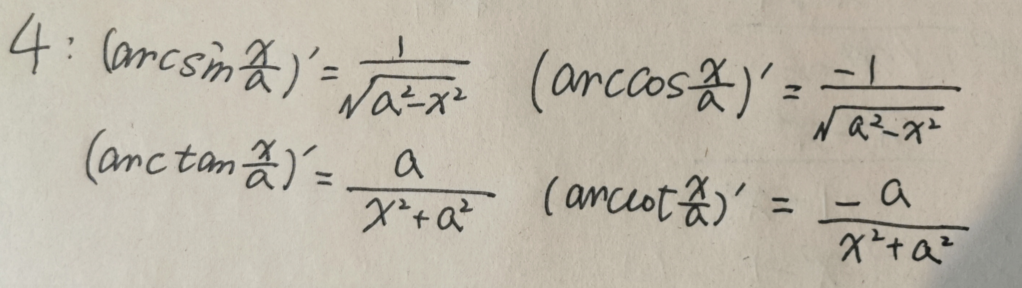 4: (arcsin x/a)' = 1/√(a²-x²) (arccos x/a)' = -1/√(a²-x²)
(arctan x/a)' = a/(x²+a²) (arccot x/a)' = -a/(x²+a²)